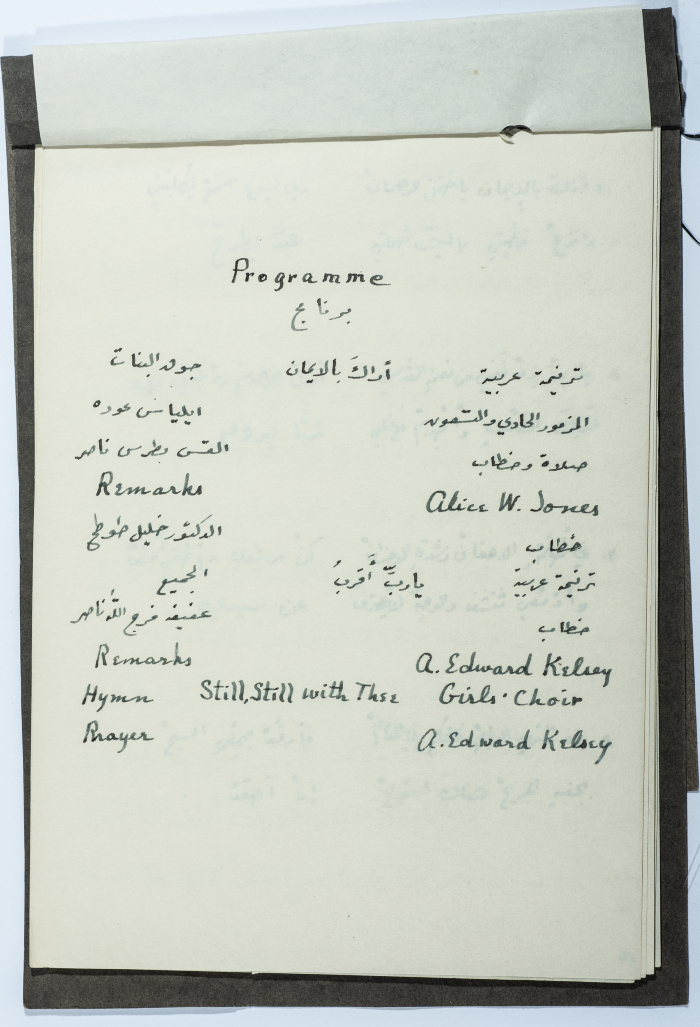 Programme
برنامج
ترنيمة عربية أراكَ بالايمان جوق البنات
المزمور الحادي والتسعون ايلياس عوده
صلاة وخطاب القس بطرس ناصر
Remarks Alice W. Jones
خطاب الدكتور خليل طوطح
ترنيمة عربية ياربِّ أَقربُ الجميع
خطاب عفيفه فرج الله ناصر
Remarks A. Edward Kelsey
Hymn Still, Still with Thee Girls' Choir
Prayer A. Edward Kelsey